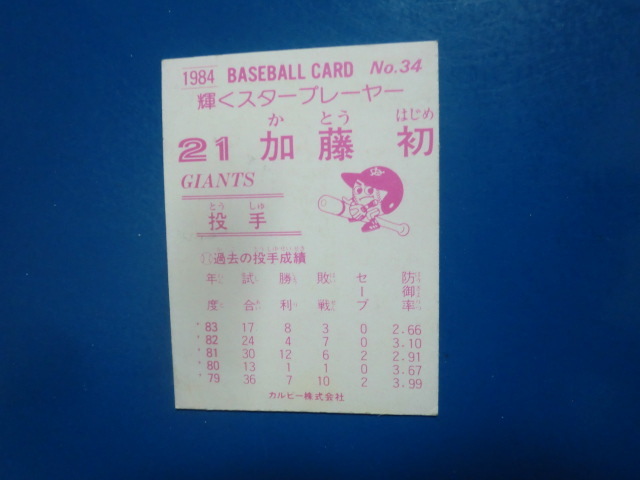 1984 BASEBALL CARD No.34
輝くスタープレーヤー
か とう はじめ
21 加藤 初
GIANTS
とう しゅ
投手
過去の投手成績
年度 試合 勝利 敗戦 セーブ 防御率
'83 17 8 3 0 2.66
'82 24 4 7 0 3.10
'81 30 12 6 2 2.91
'80 13 1 1 0 3.67
'79 36 7 10 2 3.99
カルビー株式会社